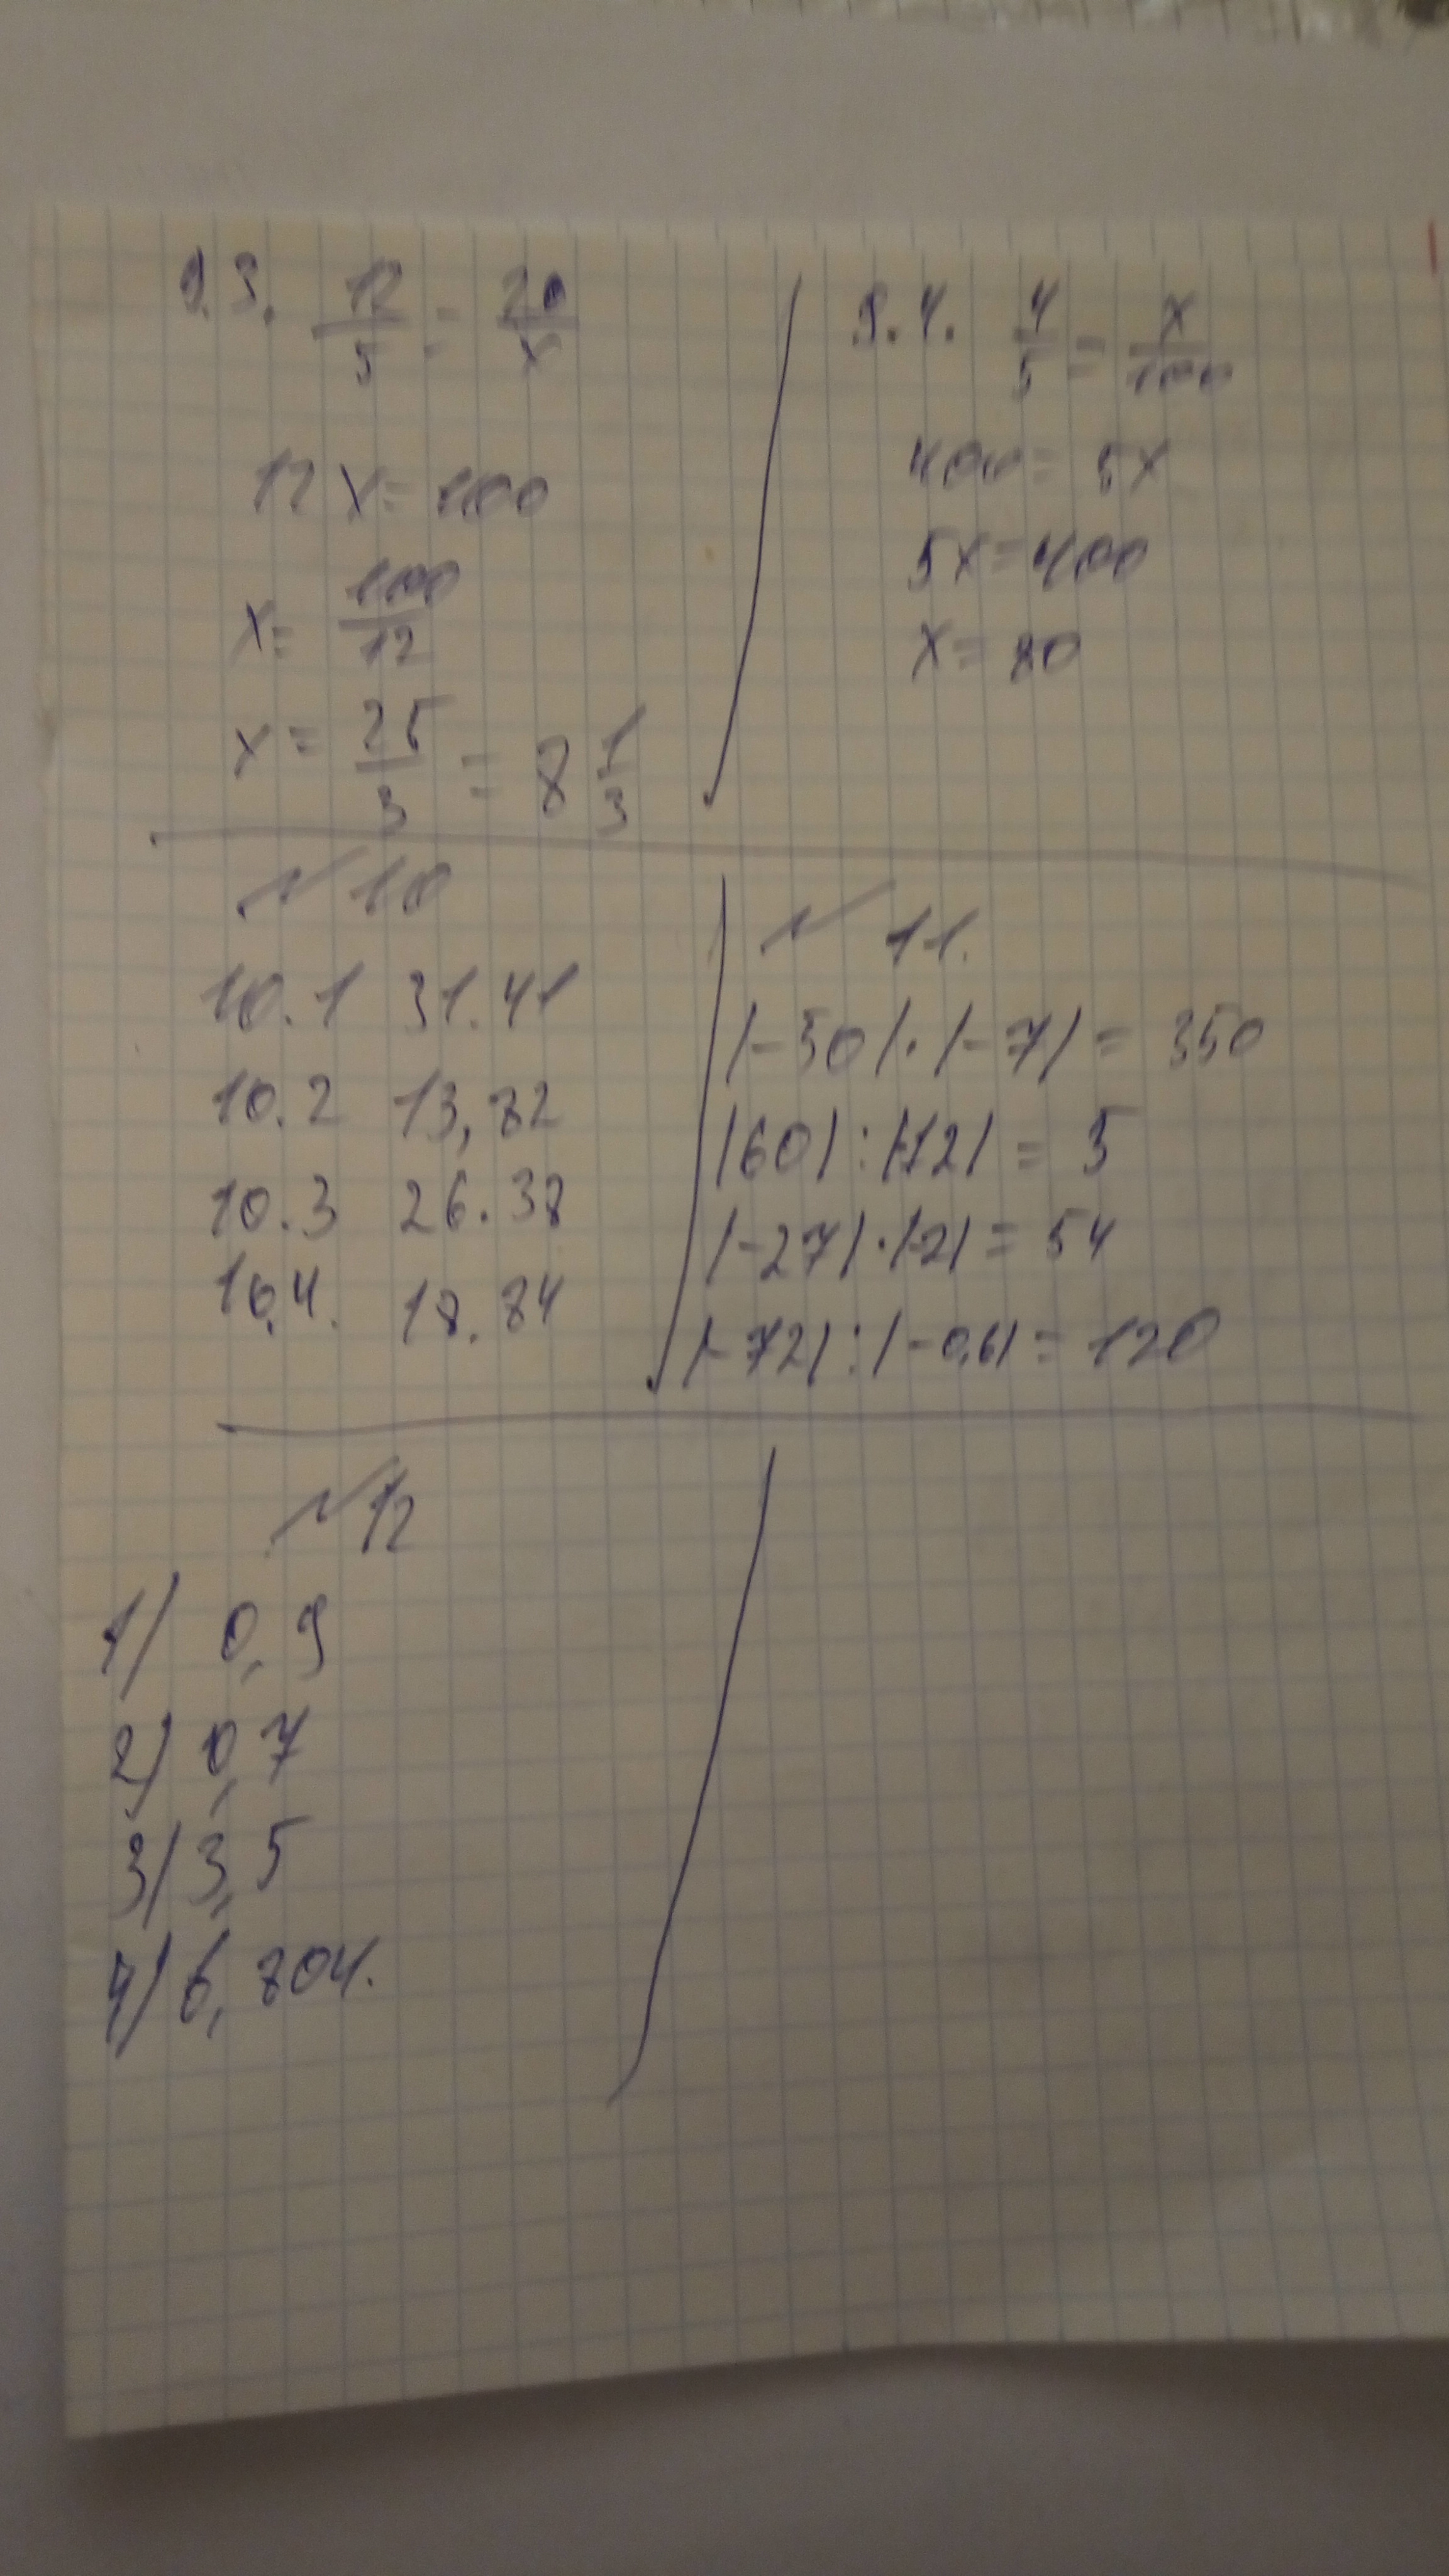 9.3. 12/5 = 20/x
12x = 100
x = 100/12
x = 25/3 = 8 1/3
9.4. 4/5 = x/100
400 = 5x
5x = 400
x = 80
№10
10.1 31.41
10.2 13,82
10.3 26.38
10.4. 18.84
№ 11.
|-50|·|-7| = 350
|60|:|-12| = 5
|-27|·|-2| = 54
|-72|:|-0,6| = 120
№12
1) 0,9
2) 0,7
3) 3,5
4) 6,804.